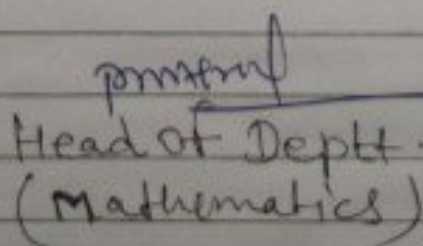 Head of Deptt.
(Mathematics)